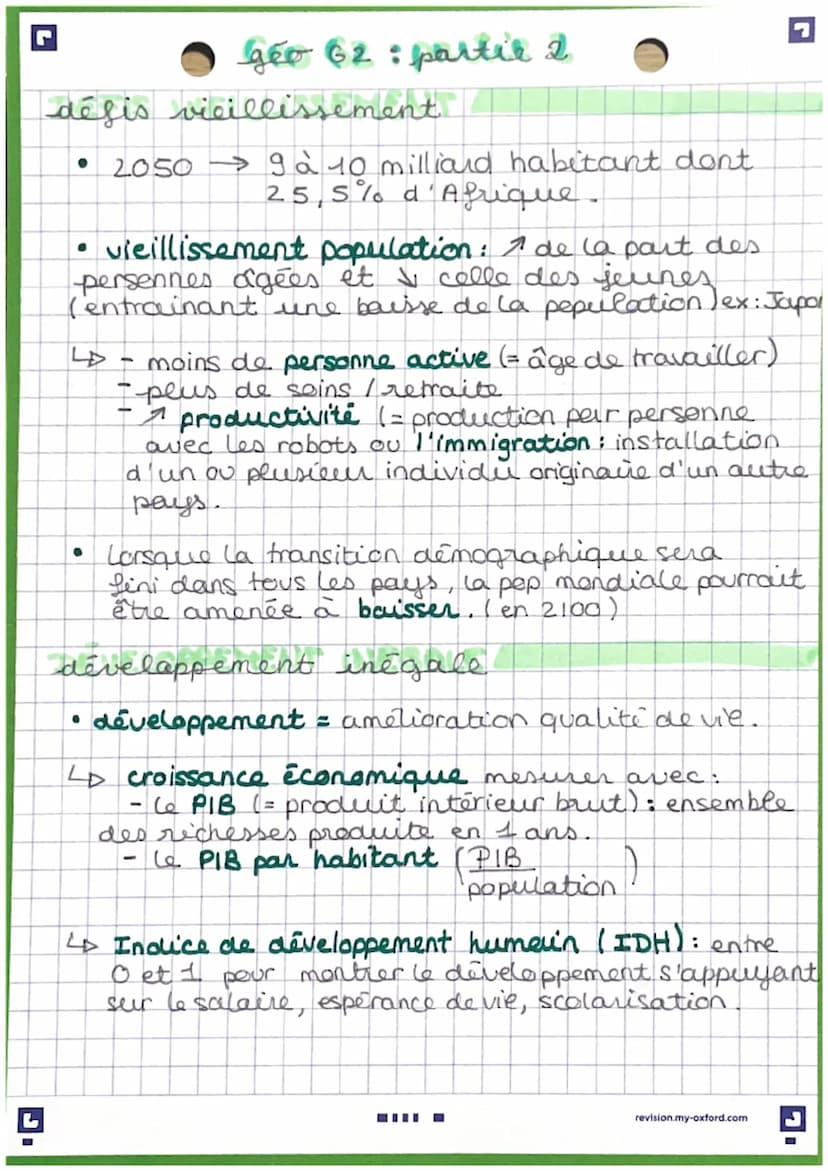 géo G2 : partie 2
défis vieillissement
• 2050 → 9 à 10 milliard habitant dont
25,5% d'Afrique.
• vieillissement population : ↗ de la part des
personnes âgées et ↘ celle des jeunes
(entrainant une baisse de la population) ex : Japon
↳ - moins de personne active (= âge de travailler)
- plus de soins / retraite
- ↗ productivité (= production par personne
avec les robots ou l'immigration : installation
d'un ou plusieur individu originaire d'un autre
pays.
• Lorsque la transition démographique sera
fini dans tous les pays, la pop mondiale pourrait
être amenée à baisser. (en 2100)
développement inégale
• développement = amélioration qualité de vie.
↳ croissance économique mesurer avec :
- le PIB (= produit intérieur brut) : ensemble
des richesses produite en 1 ans.
- le PIB par habitant (PIB
population)
↳ Indice de développement humain (IDH) : entre
0 et 1 pour montrer le développement s'appuyant
sur le salaire, espérance de vie, scolarisation.
revision.my-oxford.com